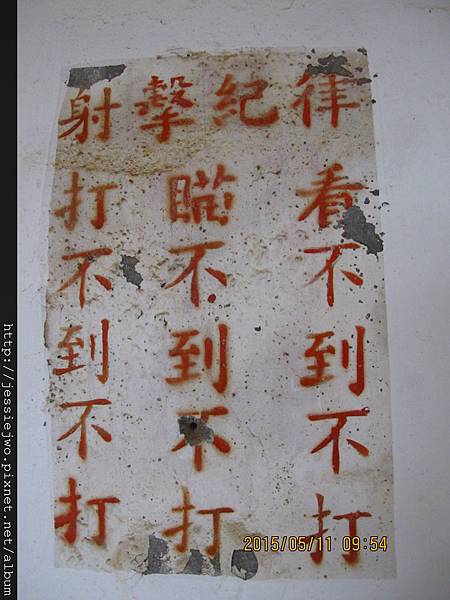 射擊紀律
看不到不打
瞄不到不打
打不到不打
2015/05/11 09:54
http://jessiejwo.pixnet.net/album